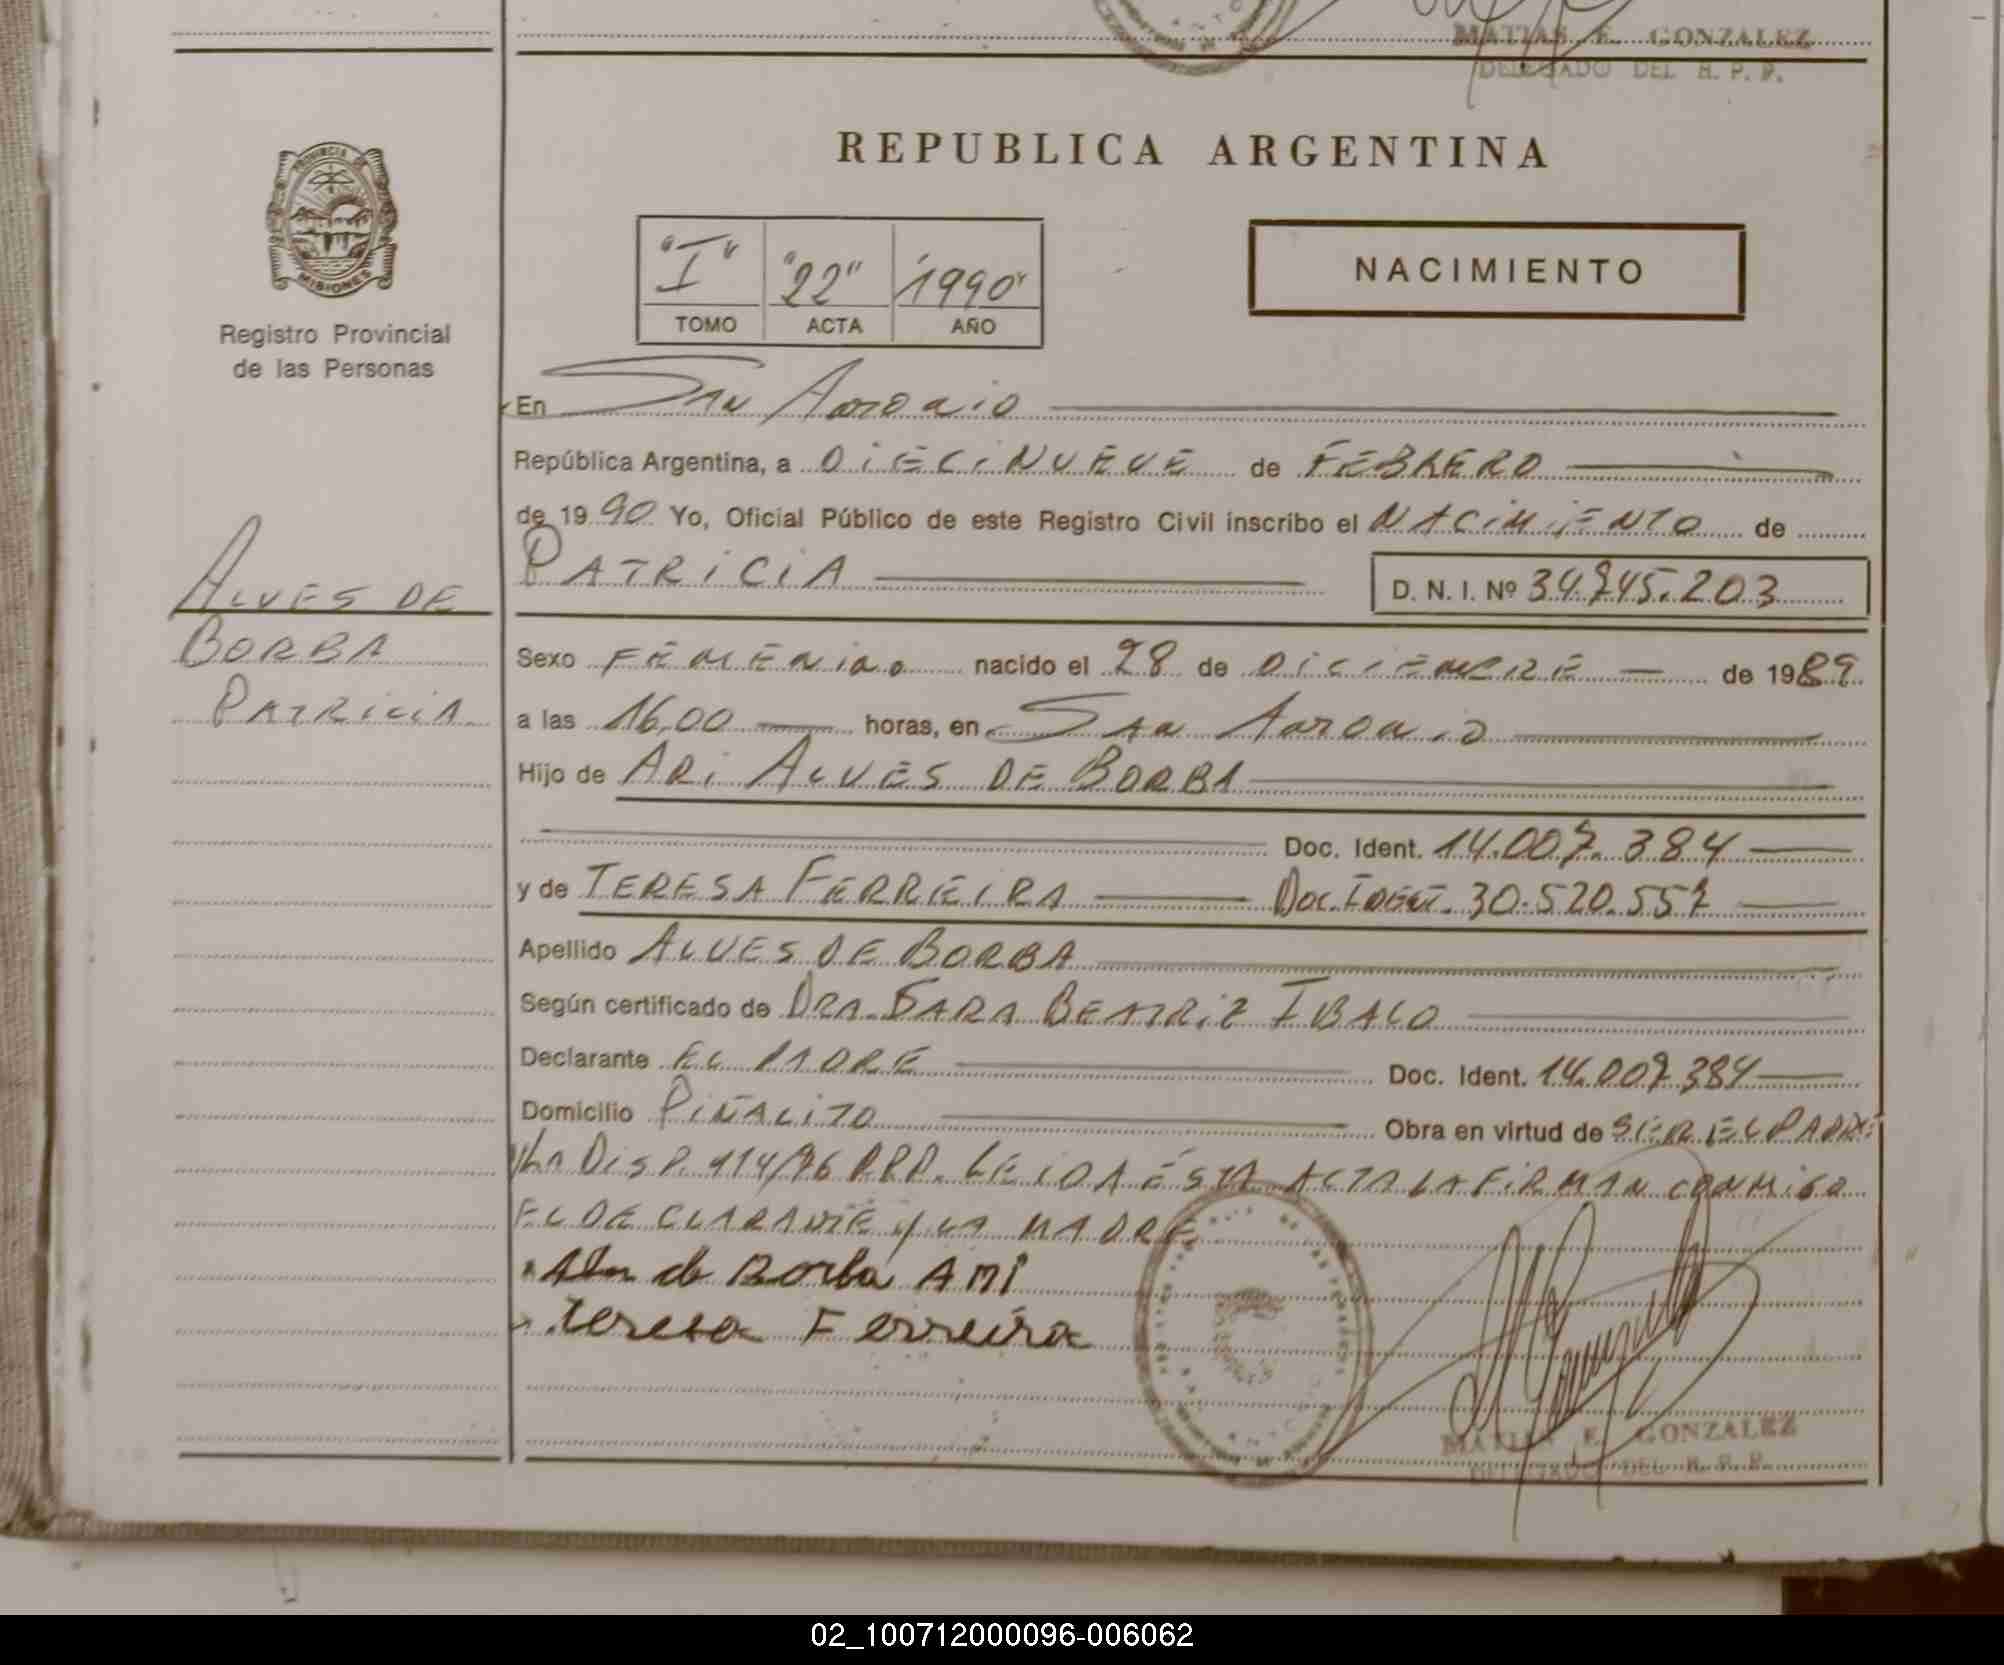 MATIAS E. GONZALEZ
DELEGADO DEL R. P. P.
REPUBLICA ARGENTINA
PROVINCIA DE
MISIONES
Registro Provincial
de las Personas
"I" "22" "1990"
TOMO ACTA AÑO
NACIMIENTO
En SAN ANTONIO
República Argentina, a DIECINUEVE de FEBRERO
de 1990 Yo, Oficial Público de este Registro Civil inscribo el NACIMIENTO de
PATRICIA D. N. I. Nº 34.745.203
ALVES DE
BORBA
PATRICIA
Sexo FEMENINO nacido el 28 de DICIEMBRE de 1989
a las 16,00 horas, en SAN ANTONIO
Hijo de ARI ALVES DE BORBA
Doc. Ident. 14.007.384
y de TERESA FERREIRA Doc. IDENT. 30.520.557
Apellido ALVES DE BORBA
Según certificado de DRA. SARA BEATRIZ IBALO
Declarante EL PADRE Doc. Ident. 14.007.384
Domicilio PIÑALITO Obra en virtud de SER EL PADRE
Y LA DISP. 114/76 R.P.P. LEIDA ÉSTA ACTA LA FIRMAN CONMIGO
EL DECLARANTE Y LA MADRE
de Borba ARI
teresa Ferreira
MATIAS E. GONZALEZ
DELEGADO DEL R. P. P.
02_100712000096-006062